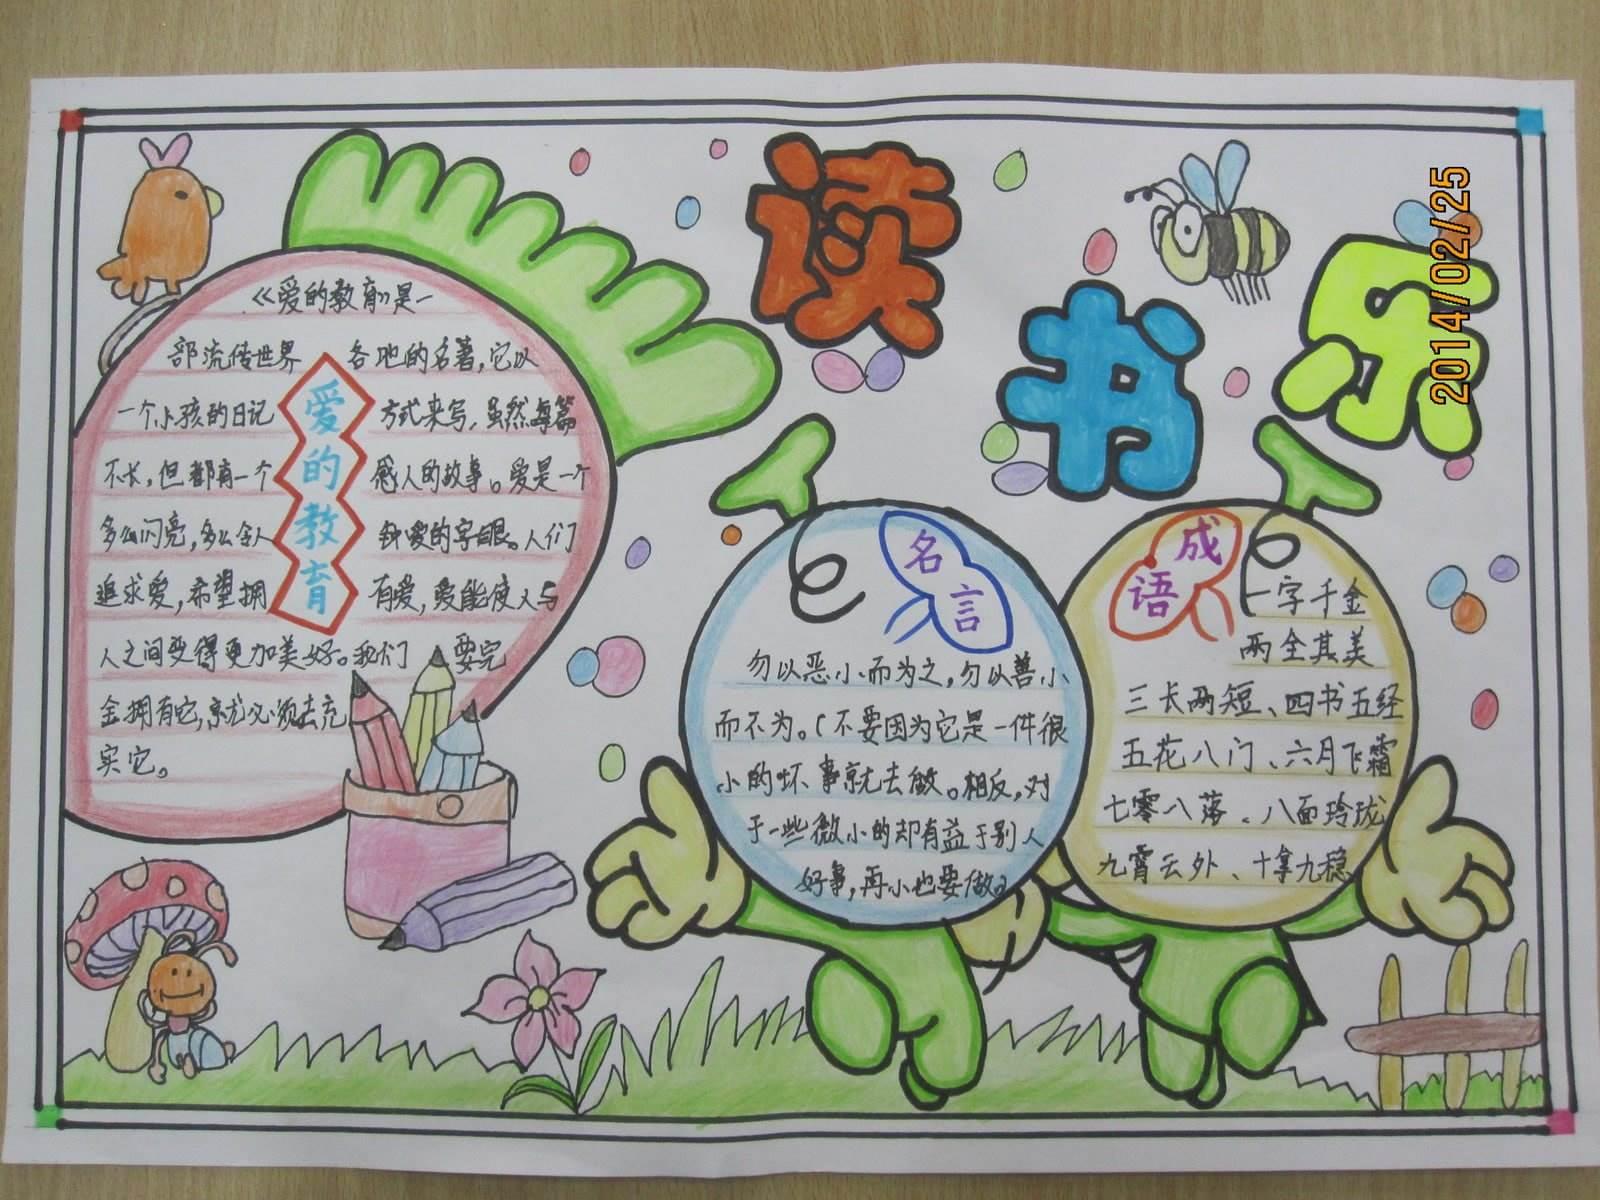 读书乐
2014/02/25
爱的教育
《爱的教育》是一
部流传世界各地的名著,它以
一个小孩的日记方式来写,虽然每篇
不长,但都有一个感人的故事。爱是一个
多么闪亮,多么令人钟爱的字眼。人们
追求爱,希望拥有爱,爱能使人与
人之间变得更加美好。我们要完
全拥有它,就必须去充
实它。
名言
勿以恶小而为之,勿以善小
而不为。(不要因为它是一件很
小的坏事就去做。相反,对
于一些微小的却有益于别人
好事,再小也要做)
成语
一字千金
两全其美
三长两短、四书五经
五花八门、六月飞霜
七零八落、八面玲珑
九霄云外、十拿九稳